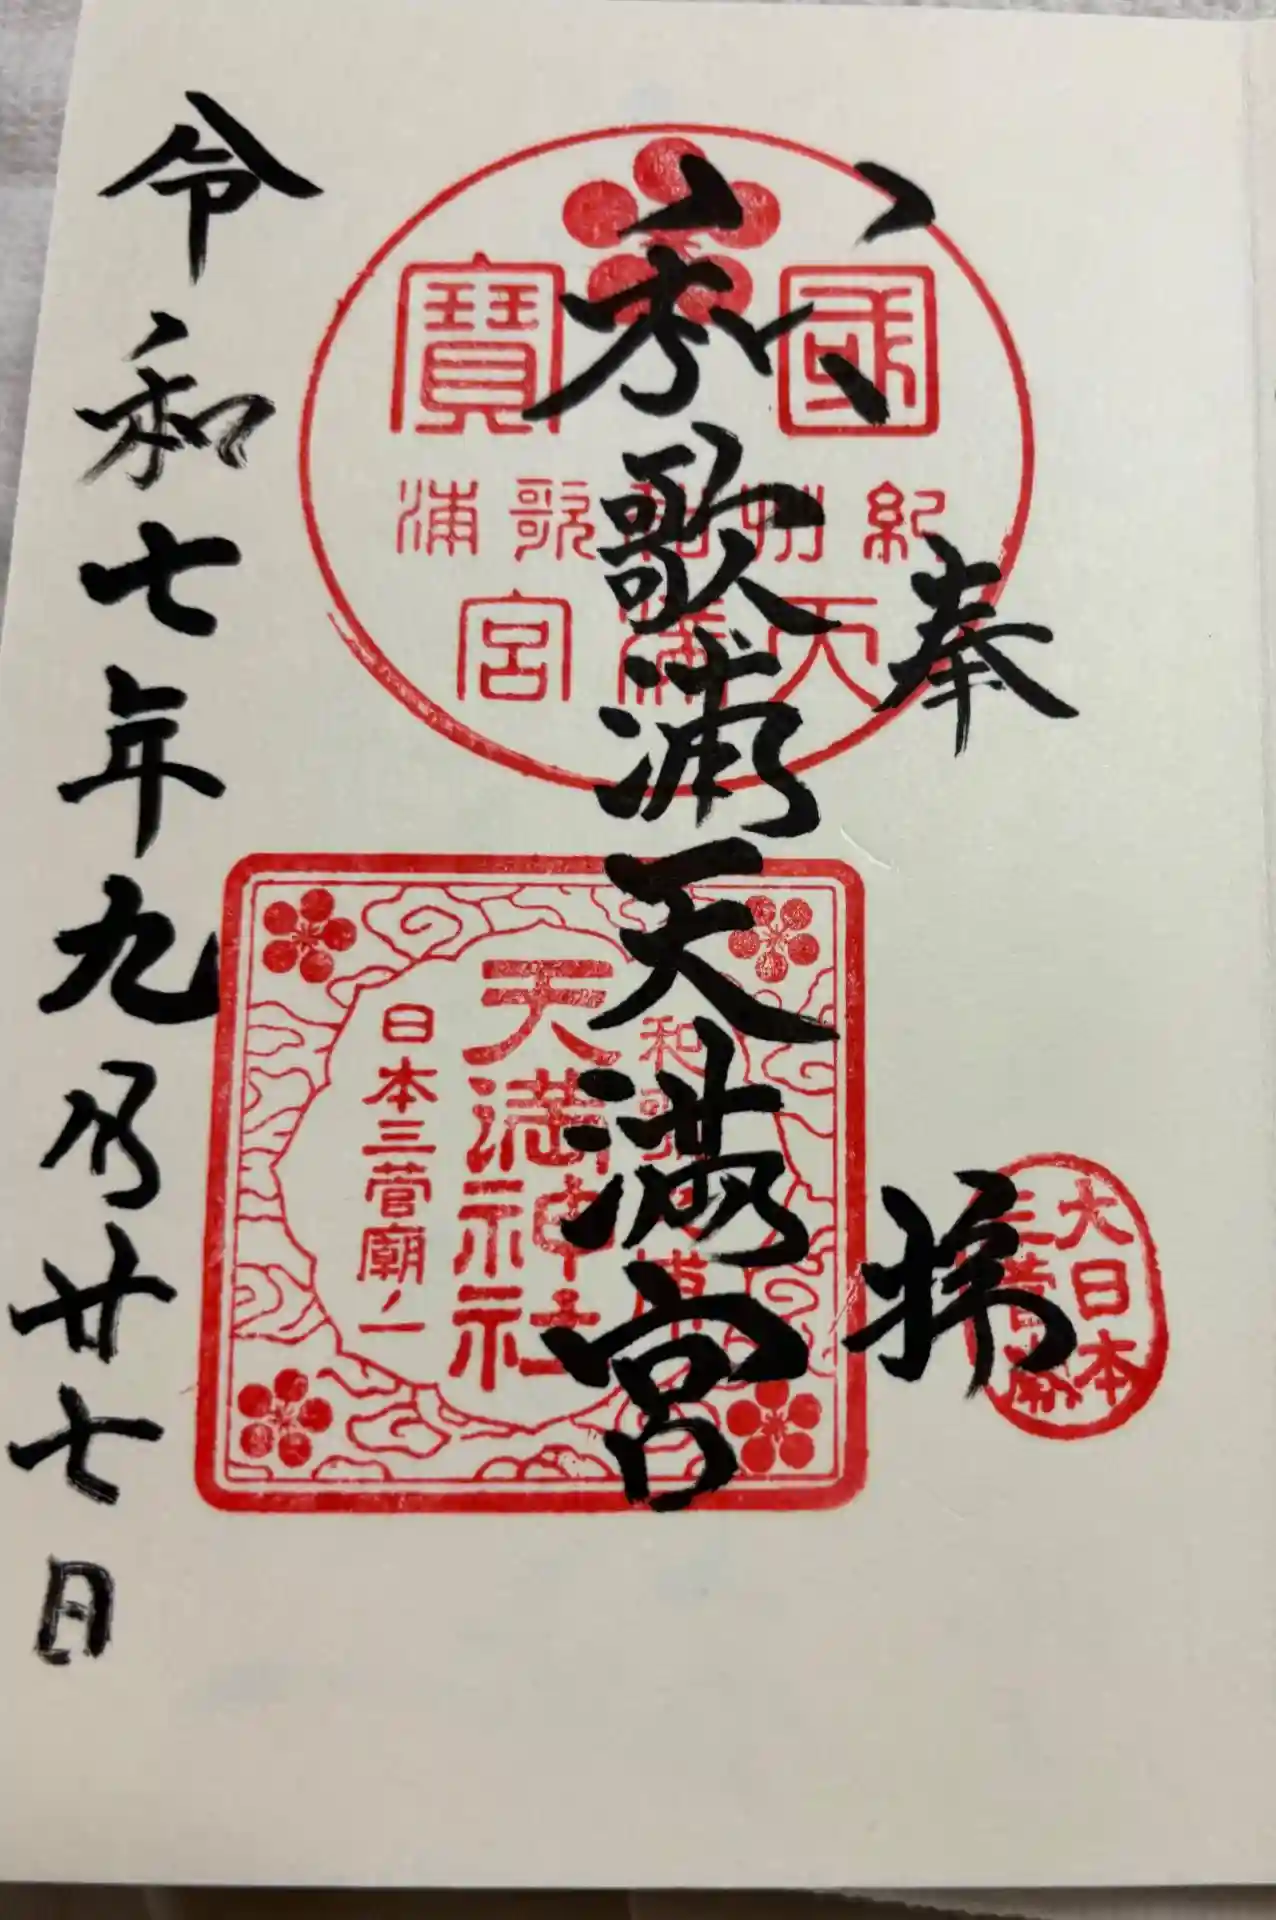 奉拝
大日本
三菅廟
國寶
紀州和歌浦
天満宮
和歌浦天満宮
和歌浦
天満神社
日本三菅廟ノ一
令和七年九月廿七日